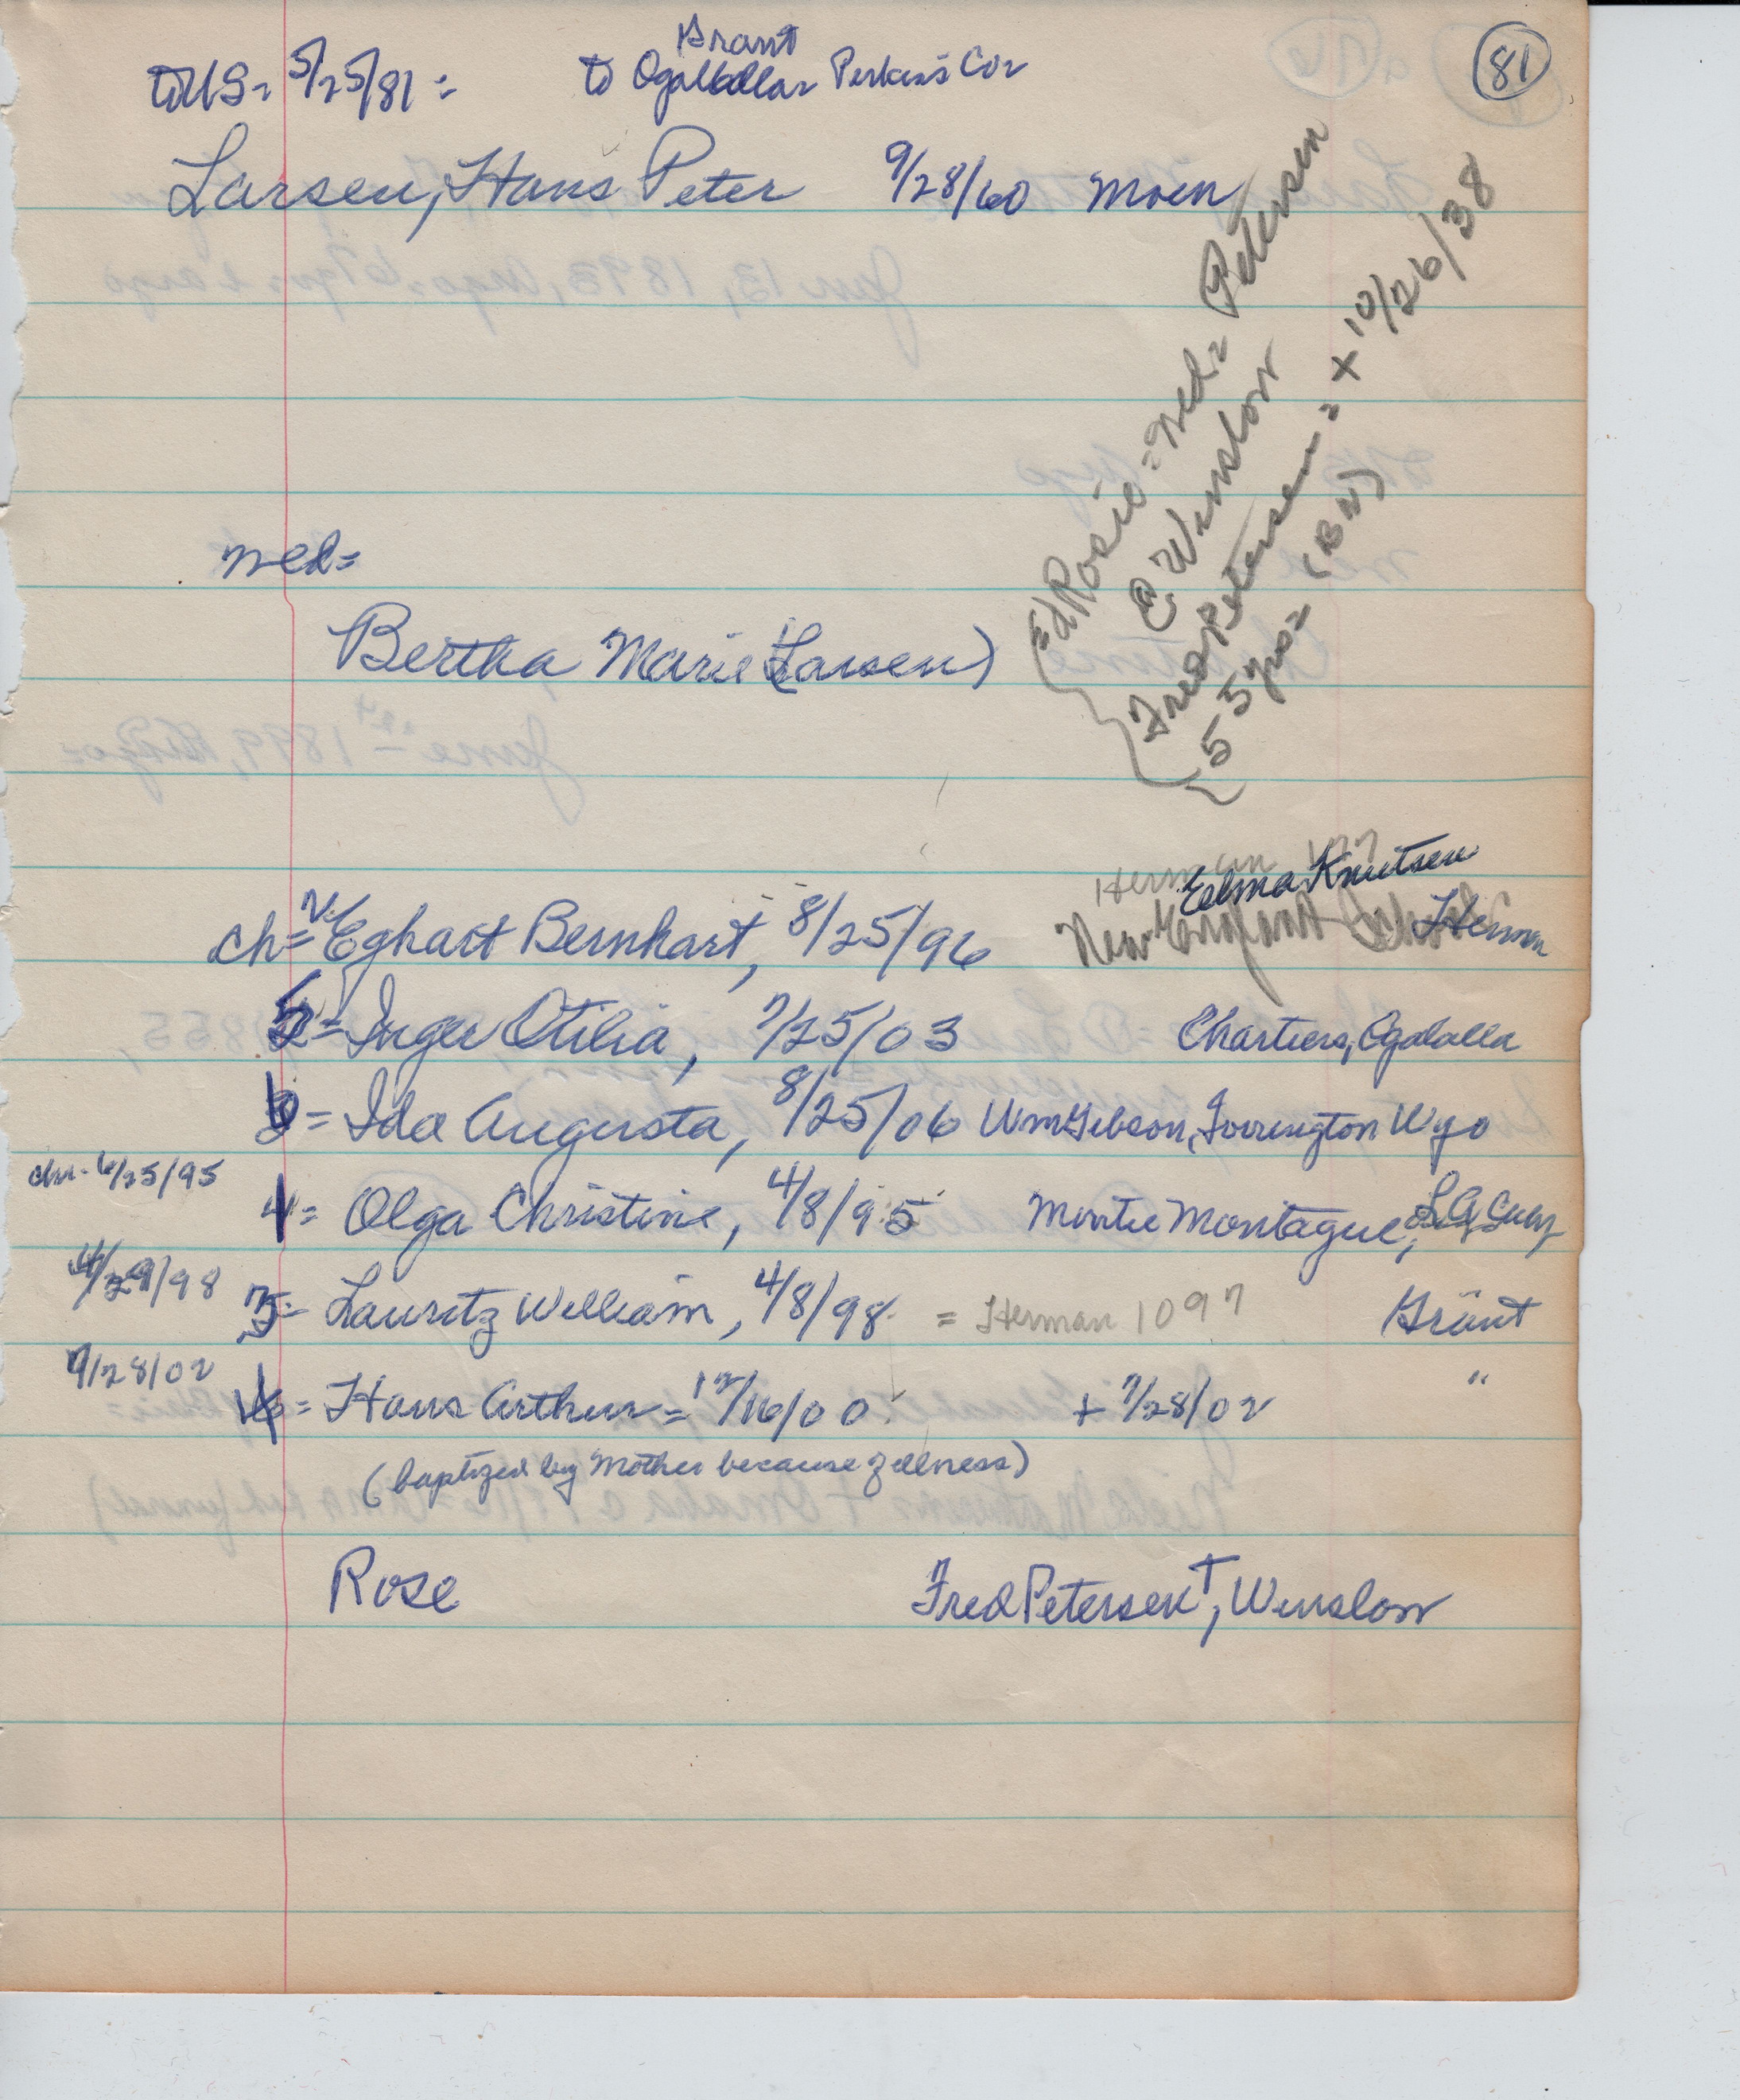 81
Grant
to US = 5/25/81 = to Ogallalla Perkins Co
Larsen, Hans Peter 9/28/60 Moen
med=
Bertha Marie (Larsen)
Rosie = med = Petersen
@ Winslow
Fred Petersen = + 10/26/38
55 yrs = (BN)
Herman
Elma Knutsen
ch= 2= Eghart Bernhart, 8/25/96 New Herman
5= Inger Otilia, 7/25/03 Chartiers, Ogalalla
6= Ida Augusta, 8/25/06 Wm Gibson, Torrington Wyo
chr. 6/25/95 1= Olga Christine, 4/8/95 Montie Montague,
4/29/98 3= Lauritz William, 4/8/98 = Herman 1097 Grant
7/28/02 4= Hans Arthur = 12/16/00 + 7/28/02 "
(baptized by Mother because of illness)
Rose Fred Petersen †, Winslow